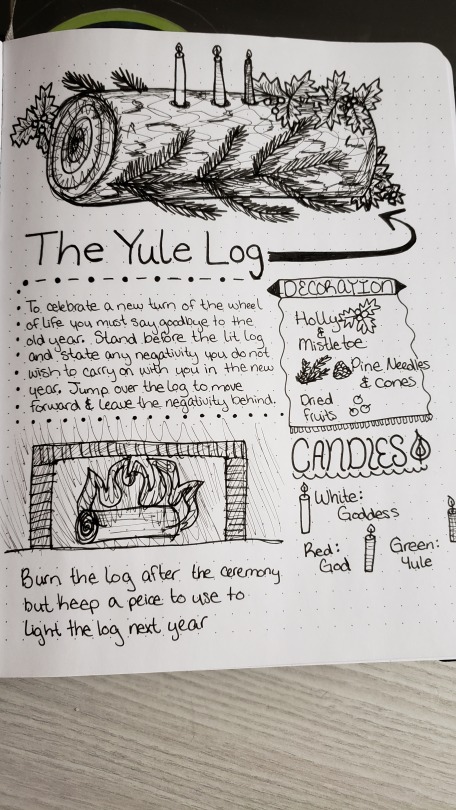 The Yule Log
To celebrate a new turn of the wheel
of life you must say goodbye to the
old year. Stand before the lit log
and state any negativity you do not
wish to carry on with you in the new
year. Jump over the log to move
forward & leave the negativity behind.
DECORATION
Holly
&
Mistletoe
Pine Needles
& Cones
Dried
fruits
CANDLES
White:
Goddess
Red:
God
Green:
Yule
Burn the log after the ceremony
but keep a peice to use to
light the log next year